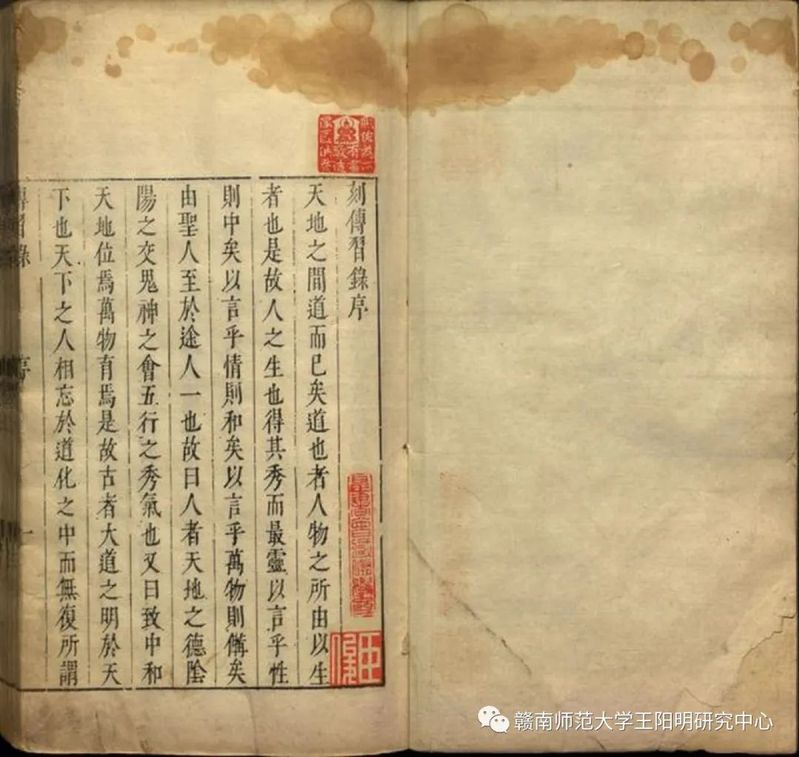 刻傳習錄序
天地之間道而已矣道也者人物之所由以生
者也是故人之生也得其秀而最靈以言乎性
則中矣以言乎情則和矣以言乎萬物則備矣
由聖人至於途人一也故曰人者天地之德陰
陽之交鬼神之會五行之秀氣也又曰致中和
天地位焉萬物育焉是故古者大道之明於天
下也天下之人相忘於道化之中而無復所謂
傳習錄
序
一
赣南师范大学王阳明研究中心